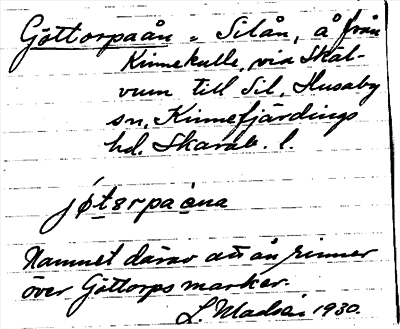 Göttorpaån = Silån, å från
Kinnekulle, via Skäl-
vum till Sil, Husaby
sn, Kinnefjärdings
hd. Skarab. l.
jøtsrpaåna
Namnet därav att ån rinner
över Göttorps marker.
L. Madsén 1930.